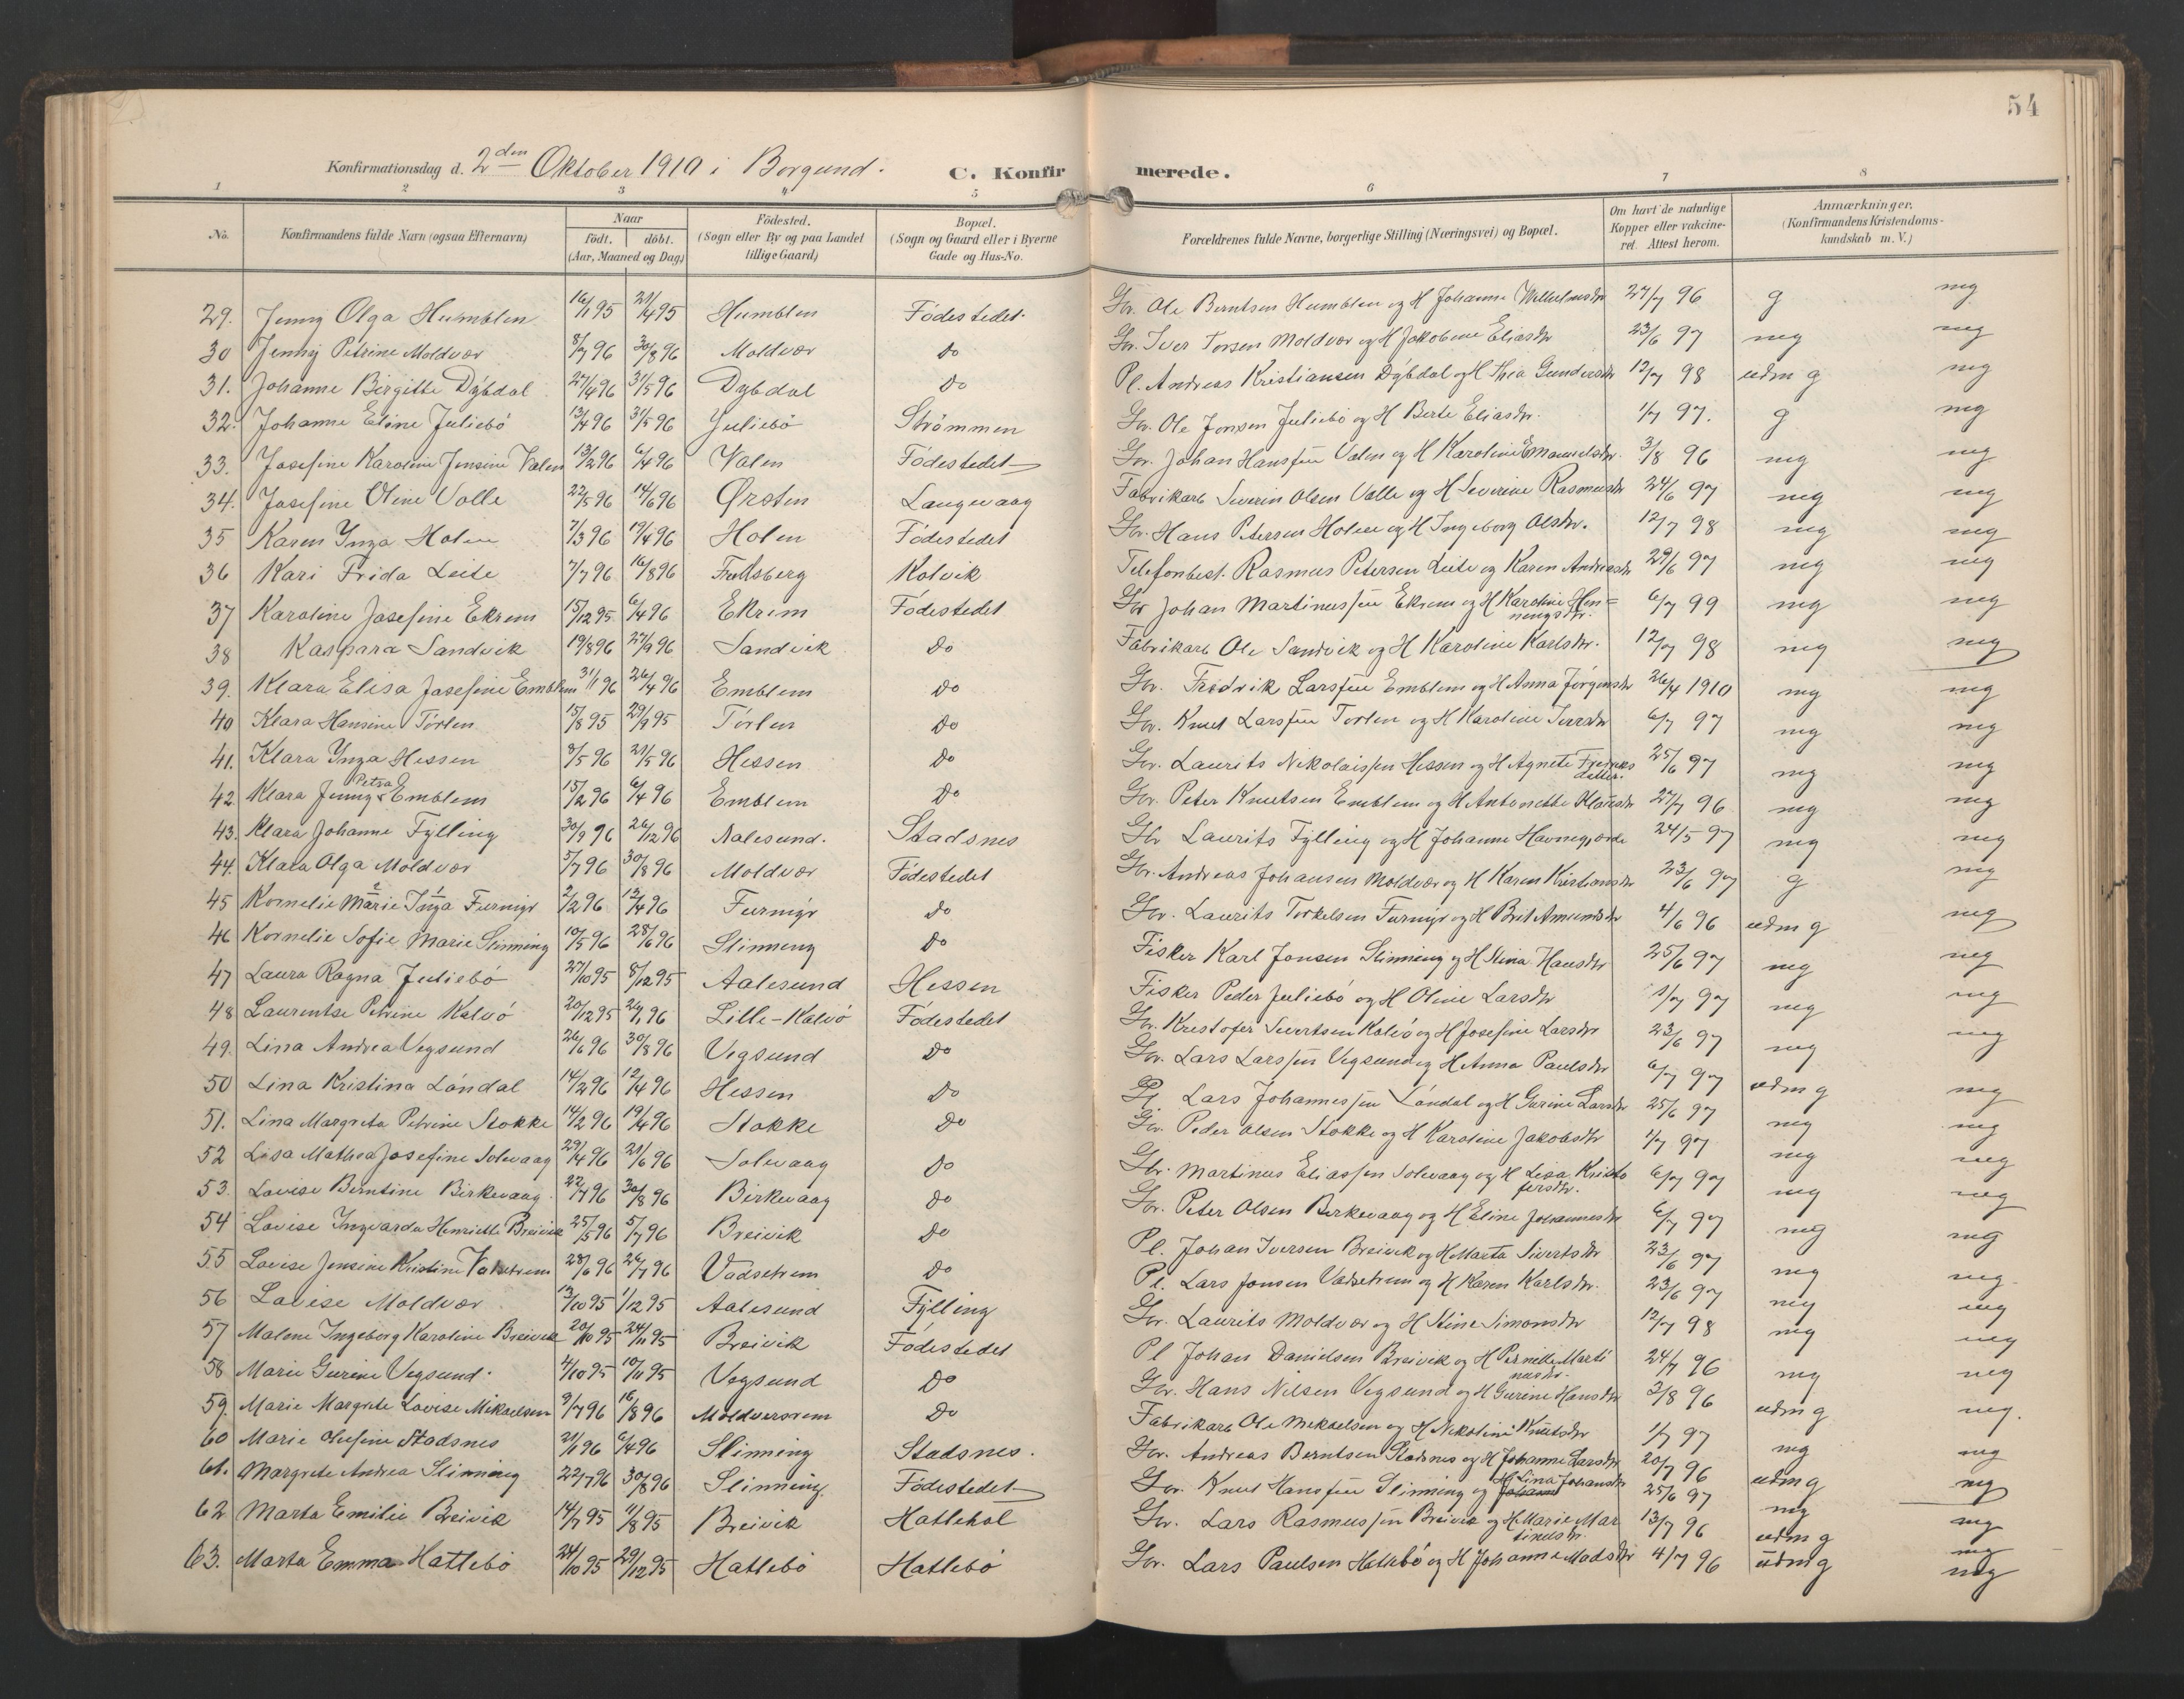 54
Konfirmationsdag d. 2den Oktober 1910 i Borgund. C. Konfirmerede.
1 2 3 4 5 6 7 8
No. Konfirmandens fulde Navn (ogsaa Efternavn) Naar født. døbt. (Aar, Maaned og Dag) Fødested. (Sogn eller By og paa Landet tillige Gaard) Bopæl. (Sogn og Gaard eller i Byerne Gade og Hus-No. Forældrenes fulde Navne, borgerlige Stilling (Næringsvei) og Bopæl. Om havt de naturlige Kopper eller vakcineret. Attest herom. Anmærkninger. (Konfirmandens Kristendomskundskab m. V.)
29. Jenny Olga Humblen 16/11 95 21/4 95 Humblen Fødestedet. Gr. Ole Berntsen Humblen og H Johanne Wilhelmsdtr 27/7 96 g mg
30 Jenny Petrine Moldvær 8/7 96 30/8 96 Moldvær Do Gr. Iver Torsen Moldvær og H Jakobine Eliasdtr 23/6 97 mg mg
31. Johanne Birgitte Dybdal 27/4 96 31/5 96 Dybdal Do Pl. Andreas Kristiansen Dybdal og H Thea Gundersdtr 12/7 98 udm g mg
32. Johanne Eline Juliebø 13/4 96 31/5 96 Juliebø Strømmen Gr. Ole Jonsen Juliebø og H Berte Eliasdtr. 1/7 97. g mg
33. Josefine Karoline Jensine Valen 13/2 96 6/4 96 Valen Fødestedet Gr. Johan Hanssen Valen og H Karoline Emanuelsdtr. 3/8 96 mg mg
34. Josefine Oline Volle 22/5 96 14/6 96 Ørsten Langevaag Fabrikarb Severin Olsen Volle og H Severine Rasmusdtr 24/6 97 mg mg
35 Karen Inga Holen 7/3 96 19/4 96 Holen Fødestedet Gr. Hans Petersen Holen og H Ingeborg Olsdtr. 12/7 98 mg mg
36 Kari Frida Leite 7/7 96 16/8 96 Kolvik Telefonbest. Rasmus Petersen Leite og Karen Andreasdtr 29/6 97 mg mg
37 Karoline Josefine Ekrem 15/12 95 6/4 96 Ekrem Fødestedet Gr Johan Martinussen Ekrem og H Karoline Henningsdtr. 6/7 99 mg mg
38 Kaspara Sandvik 19/8 96 27/9 96 Sandvik Do Fabrikarb Ole Sandvik og H Karoline Karlsdtr. 12/7 98 mg mg
39. Klara Elisa Josefine Emblem 31/1 96 26/4 96 Emblem Do Gr. Fredrik Larssen Emblem og H Anna Jørgensdtr 26/4 1910 mg mg
40 Klara Hansine Tørlen 15/8 95 29/9 95 Tørlen Do Gr. Knut Larssen Tørlen og H Karoline Iversdtr 6/7 97 mg mg
41. Klara Inga Hessen 8/5 96 21/5 96 Hessen Do Gr. Laurits Nikolaissen Hessen og H Agnete Fredriksdatter. 25/6 97 mg mg
42. Klara Jenny Petra Emblem 15/2 96 6/4 96 Emblem Do Gr. Peter Knutsen Emblem og H Antonette Klausdtr 27/7 96 mg mg
43. Klara Johanne Fylling 30/9 96 26/12 96 Aalesund. Stadsnes Gr Laurits Fylling og H Johanne Havnegjørde 24/5 97 mg mg
44. Klara Olga Moldvær 5/7 96 30/8 96 Moldvær Fødestedet Gr. Andreas Johansen Moldvær og H Karen Kristiansdtr 23/6 97 g mg
45 Kornelie Marie Inga Furmyr 2/2 96 12/4 96 Furmyr Do Gr. Laurits Torkelsen Furmyr og H Brit Amundsdtr 4/6 96 udm g mg
46 Kornelie Sofie Marie Slinning 10/5 96 28/6 96 Slinning Do Fisker Karl Jonsen Slinning og H Stina Hansdtr 25/6 97 mg mg
47 Laura Ragna Juliebø 27/10 95 8/12 95 Aalesund Hessen Fisker Peder Juliebø og H Oline Larsdtr 1/7 97 mg mg
48 Laurentse Petrine Kalvø 20/12 95 26/1 96 Lille-Kalvø Fødestedet Gr. Kristofer Sivertsen Kalvø og H Josefine Larsdtr 23/6 97 mg mg
49. Lina Andrea Vegsund 26/6 96 30/8 96 Vegsund Do Gr. Lars Larssen Vegsund og H Anna Paulsdtr 6/7 97 udm g mg
50 Lina Kristina Løndal 14/2 96 12/4 96 Hessen Do Pl Lars Johannessen Løndal og H Gurine Larsdtr 25/6 97 mg mg
51. Lina Margreta Petrine Stokke 14/2 96 19/4 96 Stokke Do Gr. Peder Olsen Stokke og H Karoline Jakobsdtr 1/7 97 mg mg
52 Lisa Mathea Josefine Solevaag 29/4 96 21/6 96 Solevaag Do Gr. Martinus Eliassen Solevaag og H Lisa Kristofersdtr. 6/7 97 mg mg
53. Lovise Berntine Birkevaag. 22/7 96 30/8 96 Birkevaag Do Gr. Peter Olsen Birkevaag og H Eline Johannesdtr 6/7 97 mg mg
54 Lovise Ingvarda Henriette Breivik 25/5 96 5/7 96 Breivik Do Pl. Johan Iversen Breivik og H Marta Sivertsdtr 23/6 97 mg mg
55 Lovise Jensine Kristine Vadsetrem 28/6 96 26/7 96 Vadsetrem Do Pl. Lars Jonsen Vadsetrem og H Karen Karlsdtr. 23/6 97 mg mg
56 Lovise Moldvær 13/10 95 1/12 95 Aalesund Fylling Gr. Laurits Moldvær og H Stine Simonsdtr 12/7 98 mg mg
57 Malene Ingeborg Karoline Breivik 20/10 95 24/11 95 Breivik Fødestedet Pl Johan Danielsen Breivik og H Pernille Martinusdtr. 24/7 96 mg mg
58 Marie Gurine Vegsund. 4/10 95 10/11 95 Vegsund Do Gr. Hans Nilsen Vegsund og H Gurine Hansdtr 3/8 96 udm g mg.
59. Marie Margrete Lovise Mikaelsen 9/7 96 16/8 96 Moldversrem Do Fabrikarb Ole Mikaelsen og H Nikoline Knutsdtr 1/7 97 mg mg
60 Marie Olufine Stadsnes 21/1 96 6/4 96 Slinning Stadsnes. Gr. Andreas Berntsen Stadsnes og H Johanne Larsdtr 20/7 96 udm g mg
61. Margrete Andrea Slinning 22/7 96 30/8 96 Slinning Fødestedet Gr. Knut Hanssen Slinning og H Lina Johansdtr 25/6 97 mg mg
62 Marta Emilie Breivik 14/7 95 11/8 95 Breivik Hatlehol Gr. Lars Rasmussen Breivik og H Marie Martinusdtr. 13/7 96 udm g mg
63. Marta Emma Hatlebø 24/10 95 29/12 95 Hatlebø Hatlebø Gr. Lars Paulsen Hatlebø og H Johanne Madsdtr 4/7 96 udm g mg